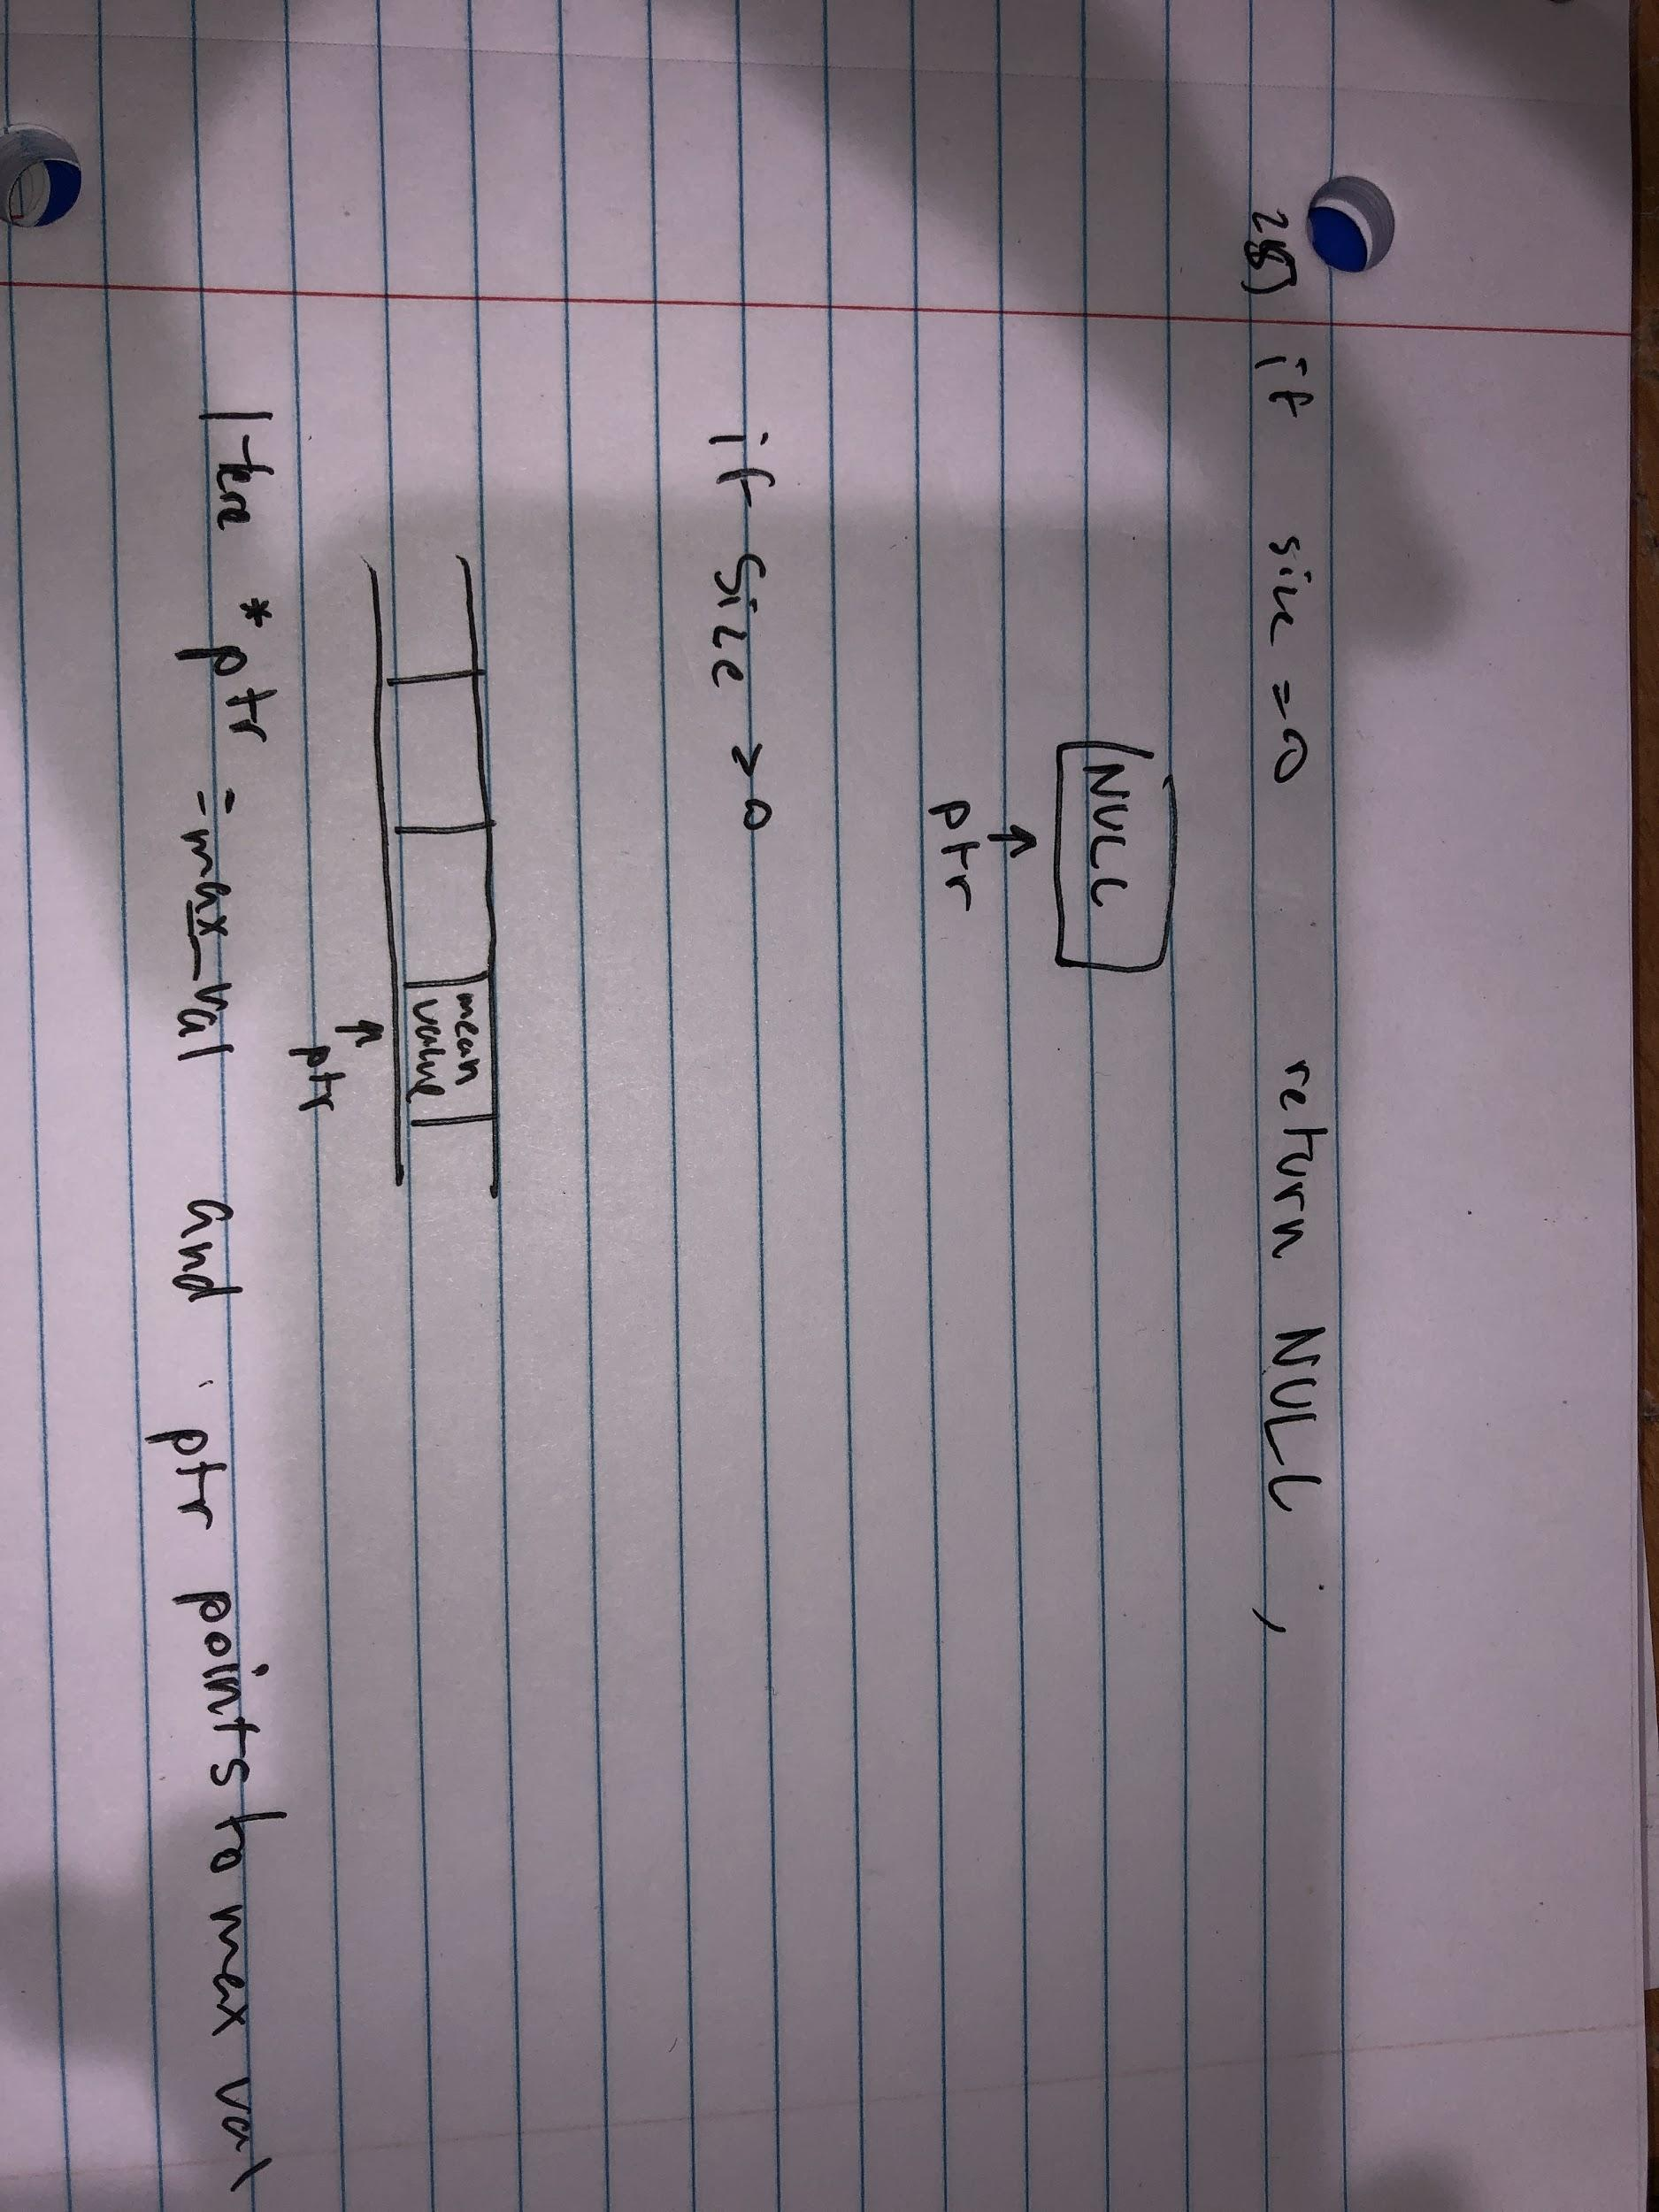 if size = 0 return NULL,
NULL
↑
ptr
if size > 0
mean
value
↑
ptr
Here * ptr = max_val and ptr points to max val